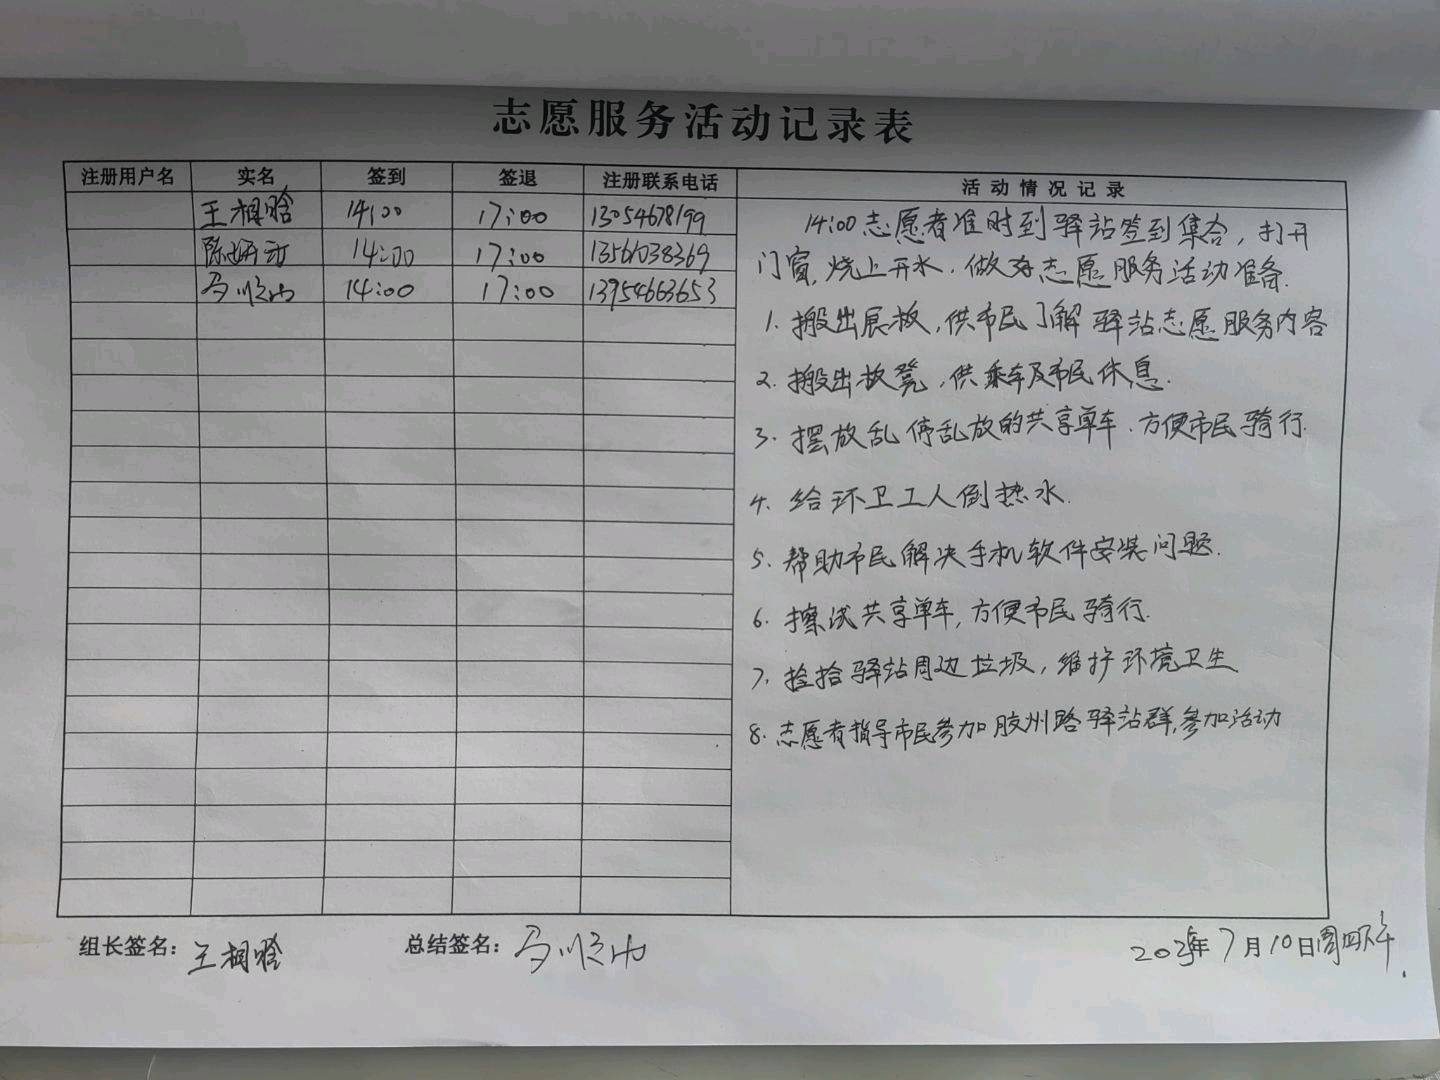 志愿服务活动记录表
注册用户名 实名 签到 签退 注册联系电话 活动情况记录
王相晗 14:00 17:00 13054678199
14:00 17:00 13561038369
马顺山 14:00 17:00 13954663653
14:00志愿者准时到驿站签到集合,打开
门窗,烧上开水.做好志愿服务活动准备.
1.搬出展板,供市民了解驿站志愿服务内容
2.搬出板凳,供乘车及市民休息.
3.摆放乱停乱放的共享单车.方便市民骑行.
4.给环卫工人倒热水.
5.帮助市民解决手机软件安装问题.
6.擦试共享单车,方便市民骑行.
7.捡拾驿站周边垃圾,维护环境卫生
8.志愿者指导市民参加胶州路驿站群,参加活动
组长签名:王相晗 总结签名:马顺山 2025年7月10日周四下午.